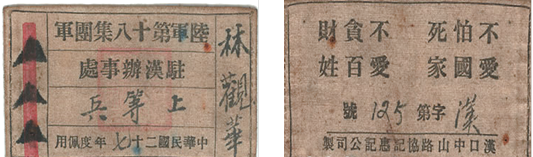 林觀華
陸軍第十八集團軍
駐漢辦事處
上等兵
中華民國二十七年度佩用
不怕死 不貪財
愛國家 愛百姓
漢字第125號
漢口中山路協記應記公司製